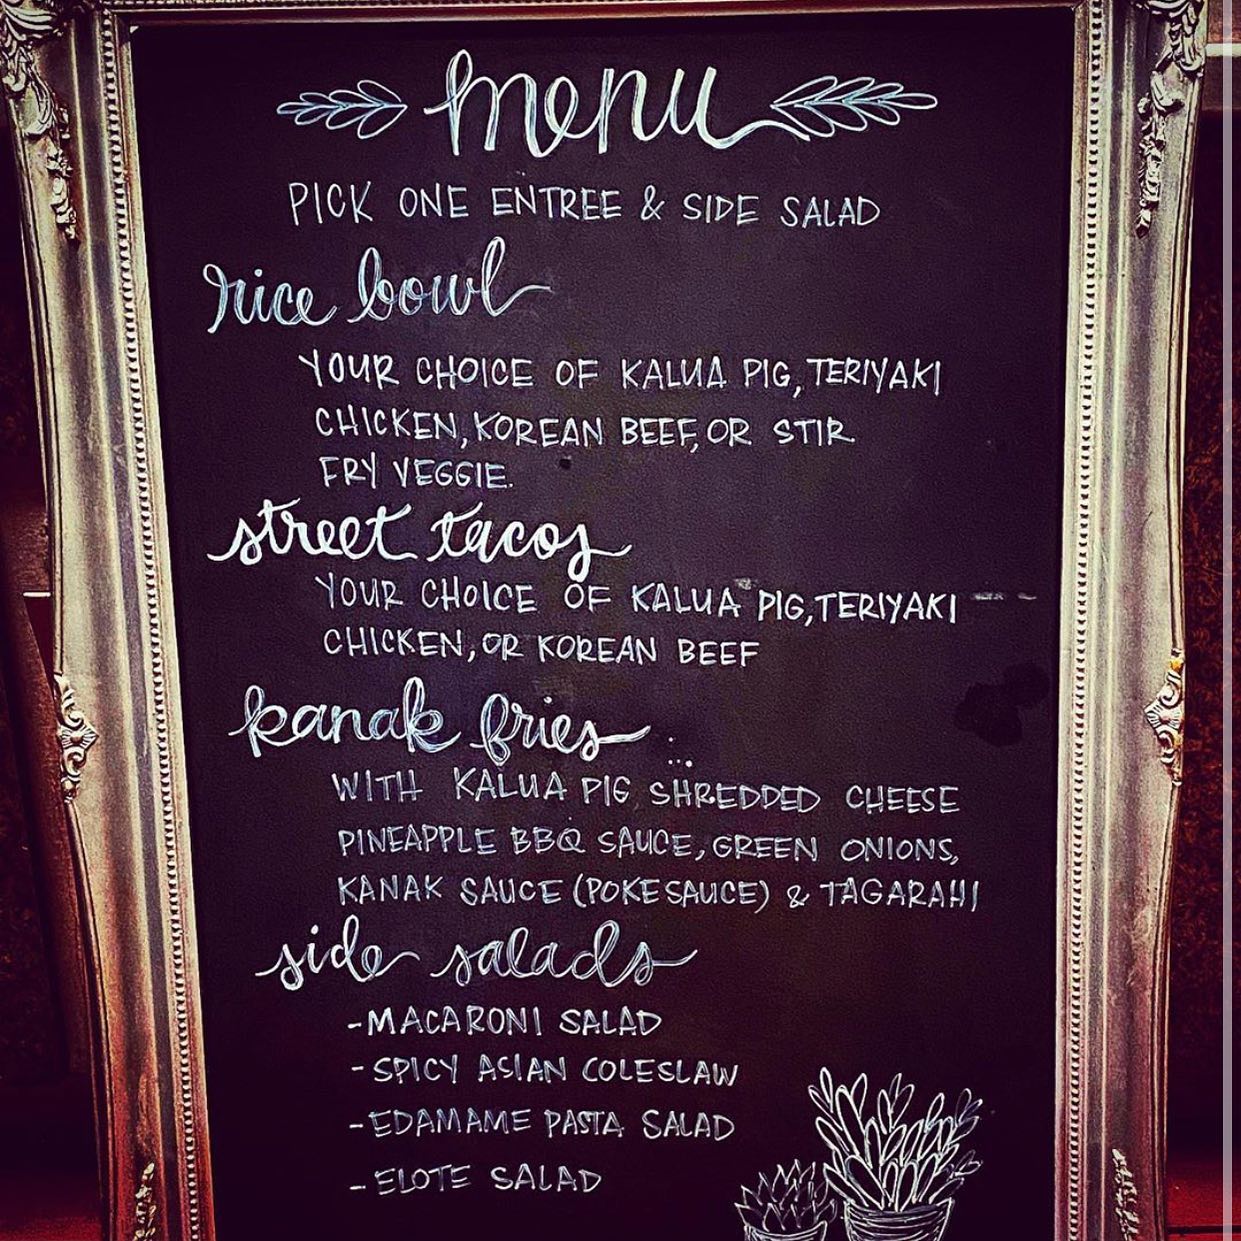 menu
PICK ONE ENTREE & SIDE SALAD
rice bowl
YOUR CHOICE OF KALUA PIG, TERIYAKI
CHICKEN, KOREAN BEEF, OR STIR
FRY VEGGIE.
street tacos
YOUR CHOICE OF KALUA PIG, TERIYAKI
CHICKEN, OR KOREAN BEEF
kanak fries
WITH KALUA PIG SHREDDED CHEESE
PINEAPPLE BBQ SAUCE, GREEN ONIONS,
KANAK SAUCE (POKE SAUCE) & TAGARAHI
side salads
-MACARONI SALAD
-SPICY ASIAN COLESLAW
-EDAMAME PASTA SALAD
-ELOTE SALAD